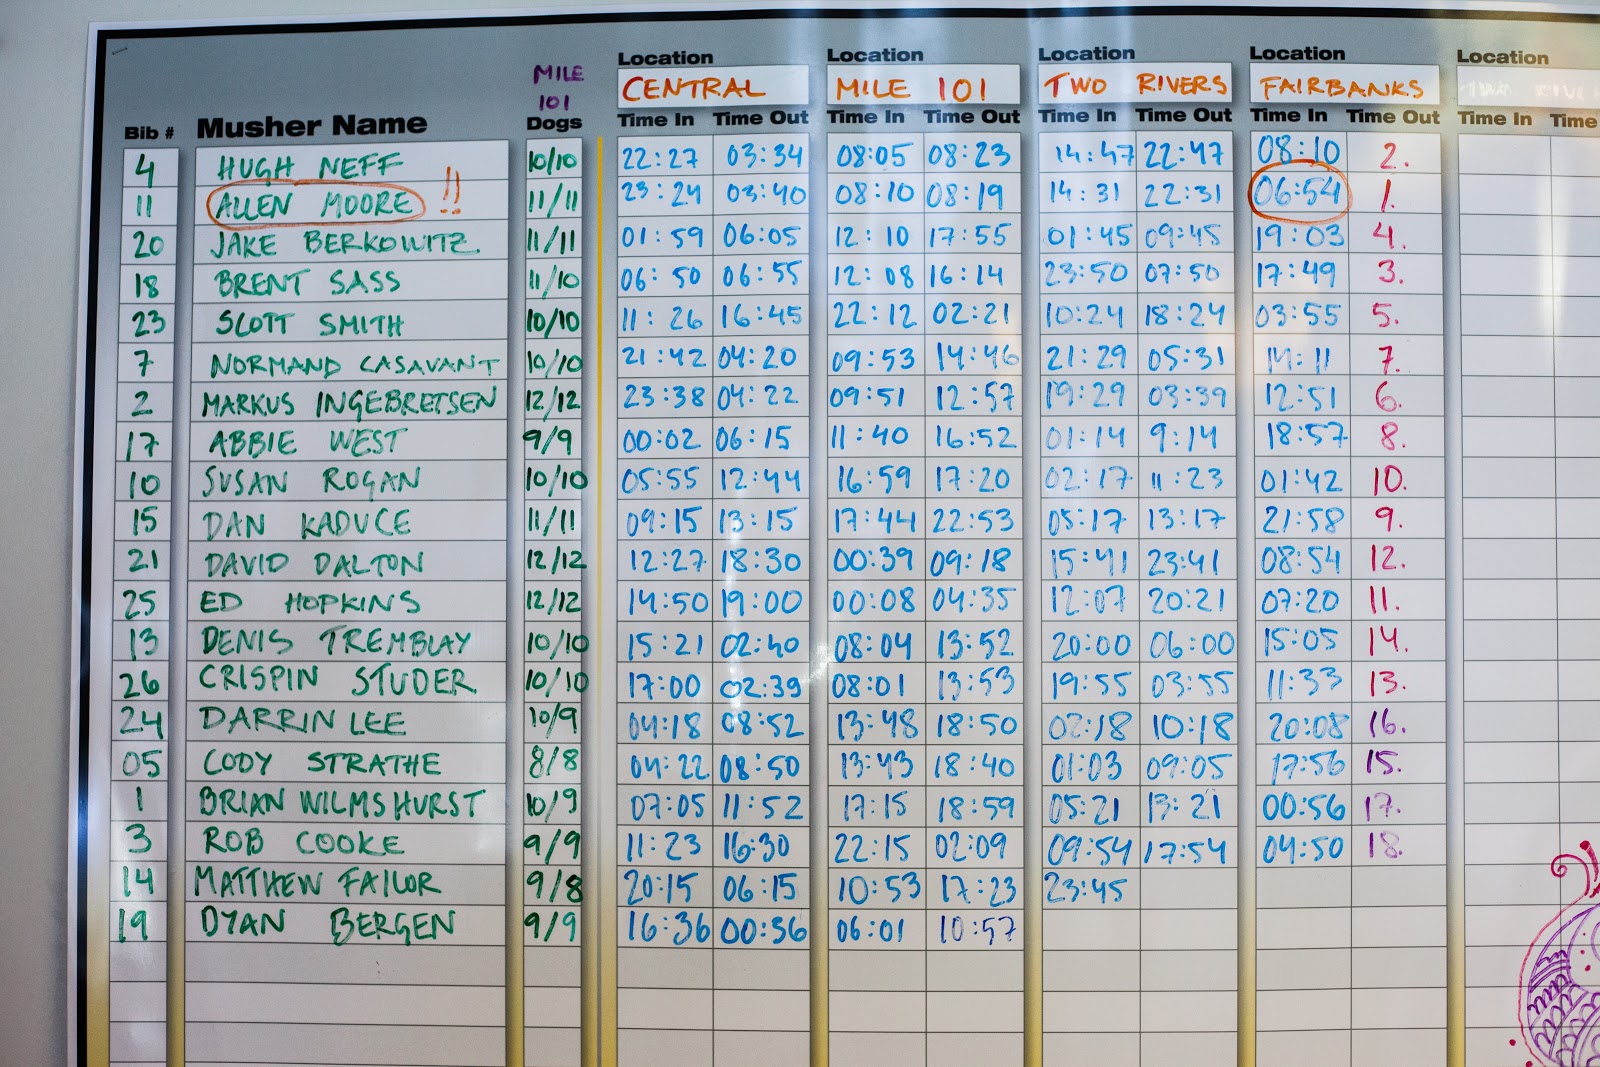 Location Location Location Location Location
MILE 101 Dogs CENTRAL MILE 101 TWO RIVERS FAIRBANKS
Bib # Musher Name Time In Time Out Time In Time Out Time In Time Out Time In Time Out Time In Time
4 HUGH NEFF 10/10 22:27 03:34 08:05 08:23 14:47 22:47 08:10 2.
11 ALLEN MOORE !! 11/11 23:24 03:40 08:10 08:19 14:31 22:31 06:54 1.
20 JAKE BERKOWITZ 11/11 01:59 06:05 12:10 17:55 01:45 09:45 19:03 4.
18 BRENT SASS 11/10 06:50 06:55 12:08 16:14 23:50 07:50 17:49 3.
23 SCOTT SMITH 10/10 11:26 16:45 22:12 02:21 10:24 18:24 03:55 5.
7 NORMAND CASAVANT 10/10 21:42 04:20 09:53 14:46 21:29 05:31 14:11 7.
2 MARKUS INGEBRETSEN 12/12 23:38 04:22 09:51 12:57 19:29 03:39 12:51 6.
17 ABBIE WEST 9/9 00:02 06:15 11:40 16:52 01:14 9:14 18:57 8.
10 SUSAN ROGAN 10/10 05:55 12:44 16:59 17:20 02:17 11:23 01:42 10.
15 DAN KADUCE 11/11 09:15 13:15 17:44 22:53 05:17 13:17 21:58 9.
21 DAVID DALTON 12/12 12:27 18:30 00:39 09:18 15:41 23:41 08:54 12.
25 ED HOPKINS 12/12 14:50 19:00 00:08 04:35 12:07 20:21 07:20 11.
13 DENIS TREMBLAY 10/10 15:21 02:40 08:04 13:52 20:00 06:00 15:05 14.
26 CRISPIN STUDER 10/10 17:00 02:39 08:01 13:53 19:55 03:55 11:33 13.
24 DARRIN LEE 10/9 04:18 08:52 13:48 18:50 02:18 10:18 20:08 16.
05 CODY STRATHE 8/8 04:22 08:50 13:43 18:40 01:03 09:05 17:56 15.
1 BRIAN WILMSHURST 10/9 07:05 11:52 17:15 18:59 05:21 13:21 00:56 17.
3 ROB COOKE 9/9 11:23 16:30 22:15 02:09 09:54 17:54 04:50 18.
14 MATTHEW FAILOR 9/8 20:15 06:15 10:53 17:23 23:45
19 DYAN BERGEN 9/9 16:36 00:36 06:01 10:57